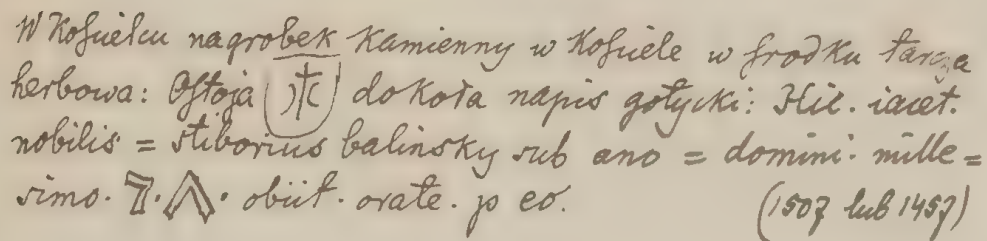 W Kościelcu nagrobek Kamienny w Kościele w środku tarcza
herbowa: Ostoja dokoła napis gotycki: Hic. iacet.
nobilis = stiborius balinsky sub ano = domini. mille =
simo. obiit. orate. p eo. (1507 lub 1457)